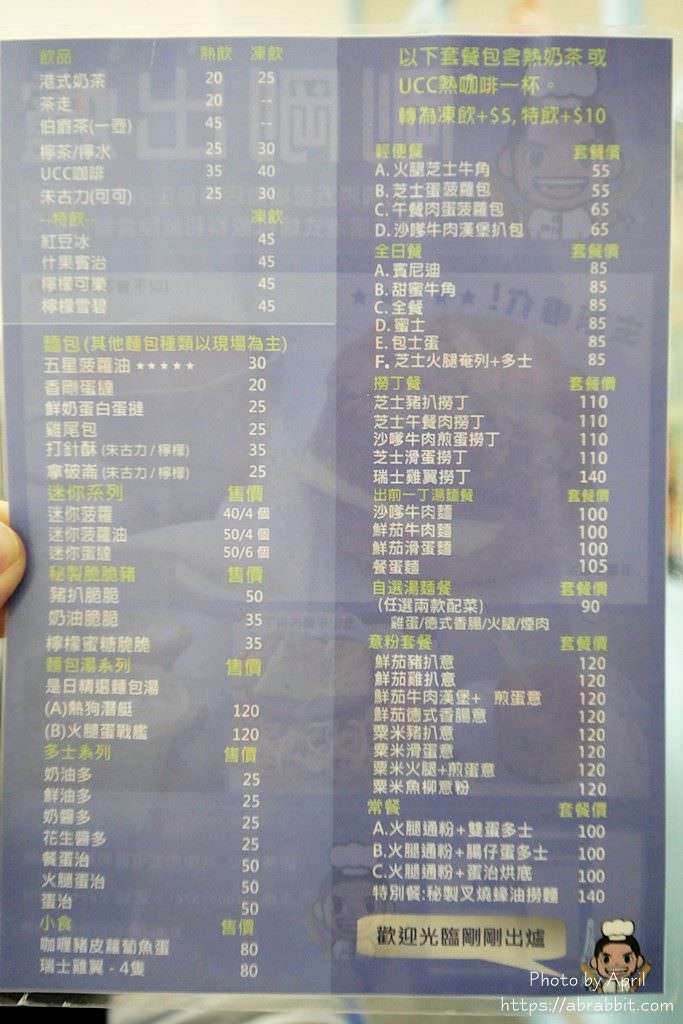 飲品 熱飲 凍飲
港式奶茶 20 25
茶走 20 --
伯爵茶(一壺) 45 --
檸茶/檸水 25 30
UCC咖啡 35 40
朱古力(可可) 25 30
--特飲-- 凍飲
紅豆冰 45
什果賓治 45
檸檬可樂 45
檸檬雪碧 45
麵包 (其他麵包種類以現場為主)
五星菠蘿油 ★★★★★ 30
香剛蛋撻 20
鮮奶蛋白蛋撻 25
雞尾包 25
打針酥 (朱古力 / 檸檬) 35
拿破崙 (朱古力 / 檸檬) 25
迷你系列 售價
迷你菠蘿 40/4 個
迷你菠蘿油 50/4 個
迷你蛋撻 50/6 個
秘製脆脆豬 售價
豬扒脆脆 50
奶油脆脆 35
檸檬蜜糖脆脆 35
麵包湯系列 售價
是日精選麵包湯
(A)熱狗潛艇 120
(B)火腿蛋戰艦 120
多士系列 售價
奶油多 25
鮮油多 25
奶醬多 25
花生醬多 25
餐蛋治 50
火腿蛋治 50
蛋治 50
小食 售價
咖喱豬皮蘿蔔魚蛋 80
瑞士雞翼 - 4隻 80
以下套餐包含熱奶茶 或
UCC熱咖啡一杯。
轉為凍飲+$5, 特飲+$10
輕便餐 套餐價
A. 火腿芝士牛角 55
B. 芝士蛋菠蘿包 55
C. 午餐肉蛋菠蘿包 65
D. 沙嗲牛肉漢堡扒包 65
全日餐 套餐價
A. 賓尼迪 85
B. 甜蜜牛角 85
C. 全餐 85
D. 蜜士 85
E. 包士蛋 85
F. 芝士火腿奄列+多士 85
撈丁餐 套餐價
芝士豬扒撈丁 110
芝士午餐肉撈丁 110
沙嗲牛肉煎蛋撈丁 110
芝士滑蛋撈丁 110
瑞士雞翼撈丁 140
出前一丁湯麵餐 套餐價
沙嗲牛肉麵 100
鮮茄牛肉麵 100
鮮茄滑蛋麵 100
餐蛋麵 105
自選湯麵餐 套餐價
(任選兩款配菜) 90
雞蛋/德式香腸/火腿/煙肉
意粉套餐 套餐價
鮮茄豬扒意 120
鮮茄雞扒意 120
鮮茄牛肉漢堡+ 煎蛋意 120
鮮茄德式香腸意 120
粟米豬扒意 120
粟米滑蛋意 120
粟米火腿+煎蛋意 120
粟米魚柳意粉 120
常餐 套餐價
A.火腿通粉+雙蛋多士 100
B.火腿通粉+腸仔蛋多士 100
C.火腿通粉+蛋治烘底 100
特別餐:秘製叉燒蠔油撈麵 140
歡迎光臨剛剛出爐
Photo by April
https://abrabbit.com